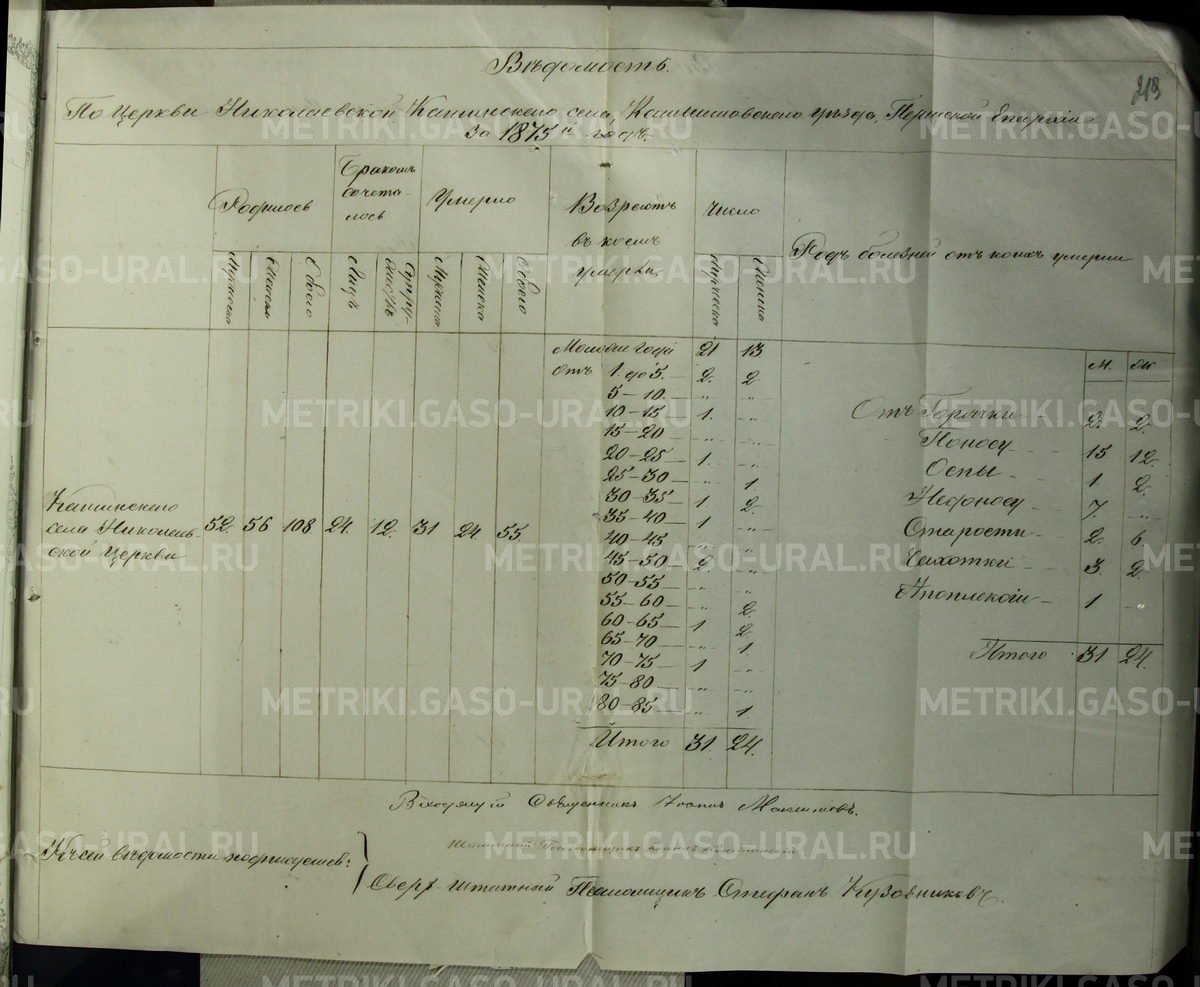 213
Вѣдомость.
По Церкви Николаевской села, Камышловского уѣзда, Пермской Епархіи
За 1875й годъ.
Родилось
Бракомъ сочета-
лось
Умерло
Возрастъ
въ коемъ
умерли.
Число
Родъ болезней отъ коихъ умерли
Мужеска
Женска
Обоего
Лицъ
Супру-
жествъ
Мужеска
Женска
Обоего
Мужеска
Женска
села Николаев-
ской Церкви
52. 56 108. 24. 12. 31 24 55.
Моложе года 21 13
отъ 1. до 5. — 2. 2
5 — 10. — „ „
10 — 15 — 1. „
15 — 20 — „ „
20 — 25 — 1. „
25 — 30 — „ 1
30 — 35 — 1 2.
35 — 40 — 1 „
40 — 45 — „ „
45 — 50 — 2. „
50 — 55 — „ „
55 — 60 — „ 2.
60 — 65 — 1 2.
65 — 70 — „ 1
70 — 75 — 1 „
75 — 80 — „ „
80 — 85 — „ 1
Итого 31. 24.
м. ж
Отъ Горячки 2. 2.
Поносу 15 12.
Оспы 1 2.
Недоносу 7 „
Старости 2. 6.
Чахотки 3. 2.
Апоплексіи 1 „
Итого 31 24.
Священникъ Іоаннъ Максимовъ.
Къ сей вѣдомости подписуемся:
Штатный Псаломщикъ
Сверхштатный Псаломщикъ Стефанъ Кузовниковъ.
METRIKI.GASO-URAL.RU